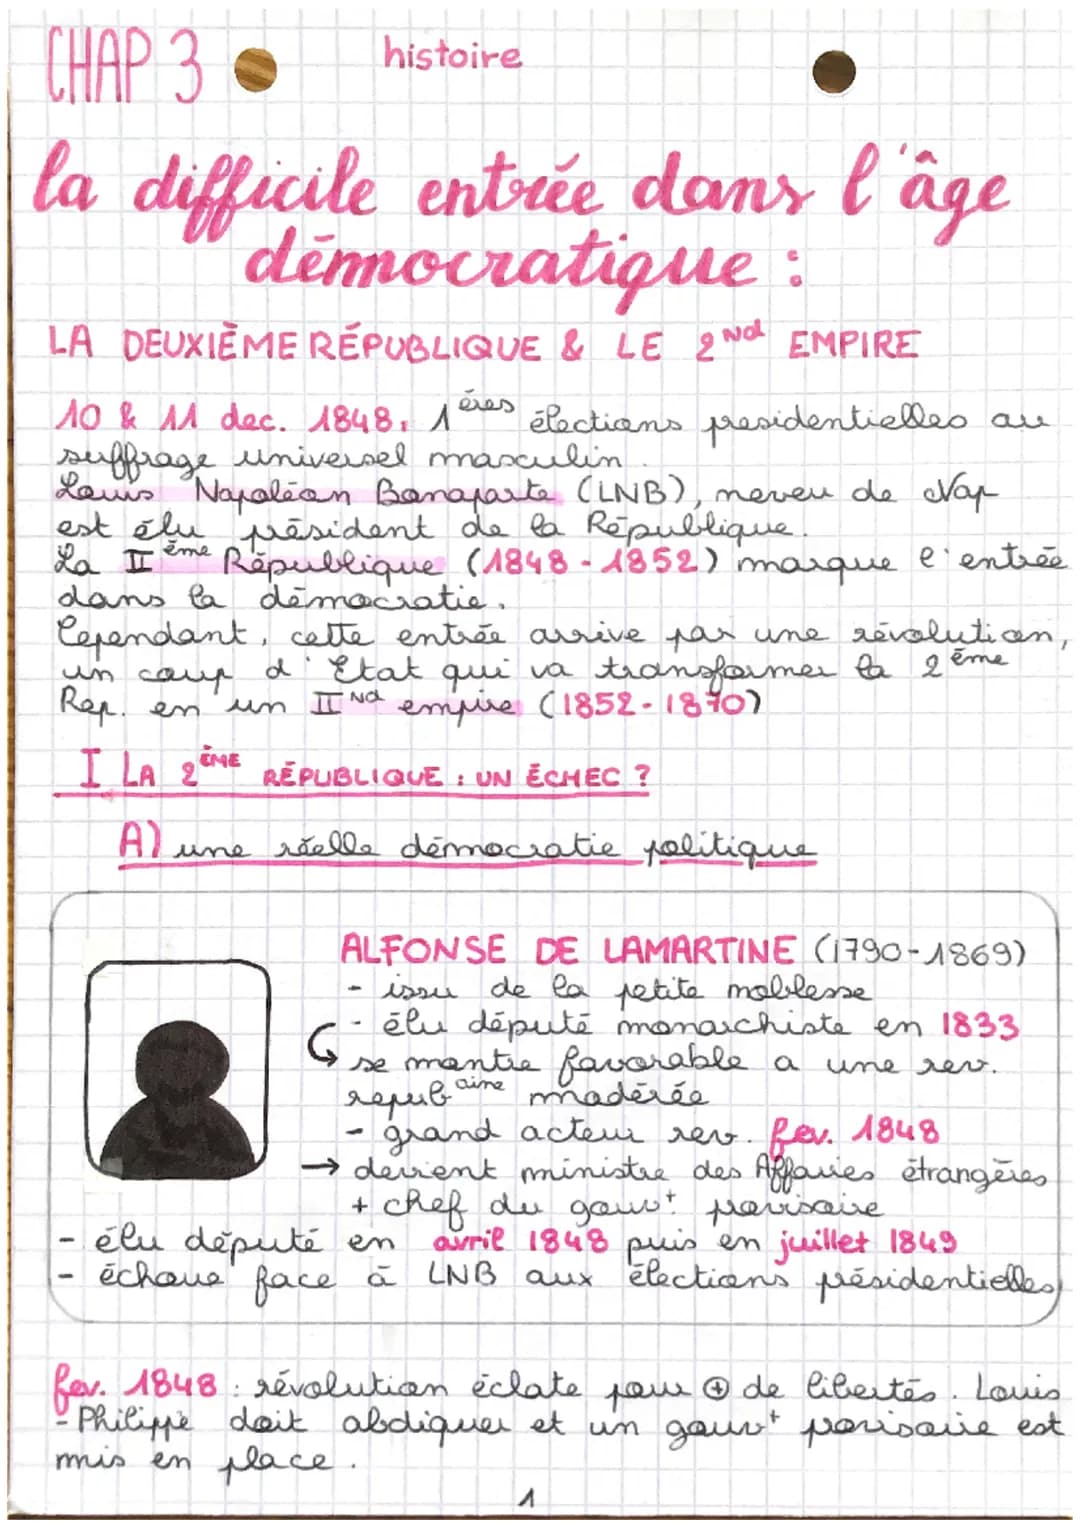 CHAP 3
histoire
la difficile entrée dans l'âge
démocratique :
LA DEUXIÈME RÉPUBLIQUE & LE 2Nd EMPIRE
10 & 11 dec. 1848: 1ères élections presidentielles au
suffrage universel masculin.
Louis Napoléon Bonaparte (LNB), neveu de Nap
est élu président de la République.
La IIème République (1848 - 1852) marque l'entrée
dans la démocratie.
Cependant, cette entrée arrive par une révolution,
un coup d'Etat qui va transformer la 2ème
Rep. en un IINd empire (1852-1870)
I LA 2ÈME RÉPUBLIQUE : UN ÉCHEC ?
A) une réelle démocratie politique
ALFONSE DE LAMARTINE (1790-1869)
- issu de la petite noblesse
- élu député monarchiste en 1833
se montre favorable a une rev.
republicaine modérée
- grand acteur rev. fev. 1848
→ devient ministre des Affaires étrangères
+ chef du gouvt. provisoire
- élu député en avril 1848 puis en juillet 1849
- échoue face à LNB aux élections présidentielles
fev. 1848 : révolution éclate pour ⊕ de libertés. Louis
-Philippe doit abdiquer et un gouvt provisoire est
mis en place.
1